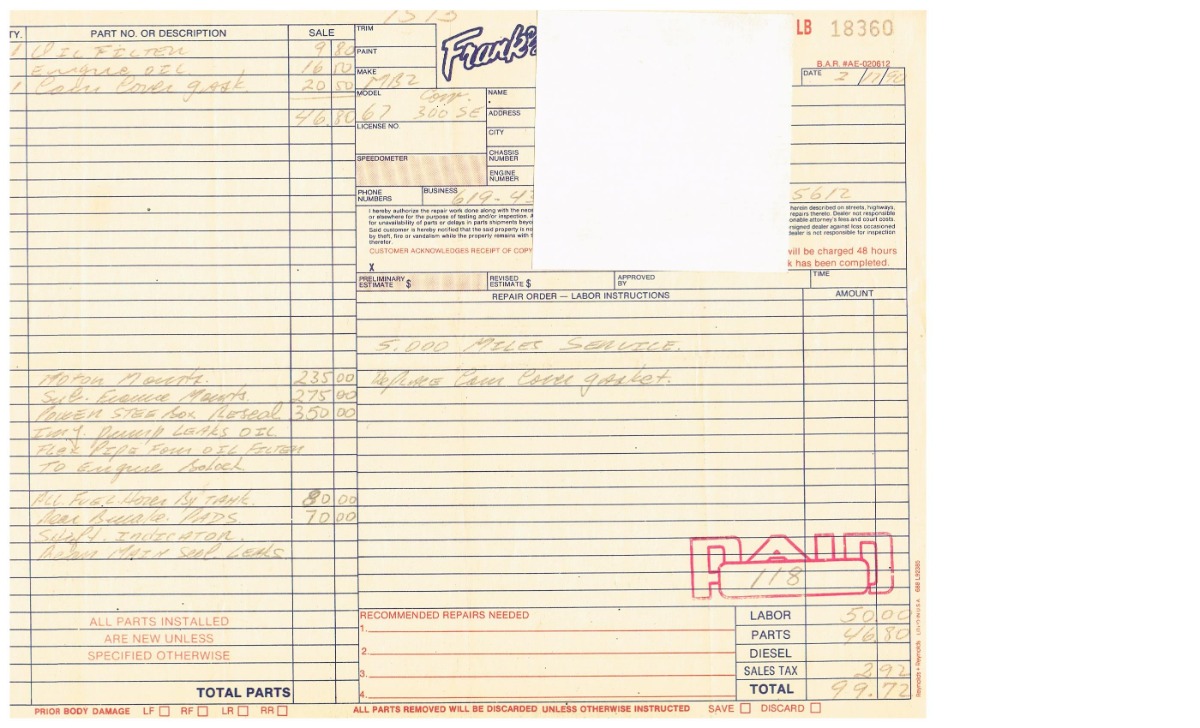 1313
LB 18360
TY. PART NO. OR DESCRIPTION SALE
1 OIL FILTER 9 80
Engine OIL 16 50
1 Cam Cover gask 20 50
46.80
TRIM
PAINT
MAKE MBZ
MODEL Conv.
67 300 SE
LICENSE NO.
SPEEDOMETER
Frank's
B.A.R. #AE-020612
DATE 2/17/90
NAME
ADDRESS
CITY
CHASSIS NUMBER
ENGINE NUMBER
PHONE NUMBERS BUSINESS 619-43 5612
I hereby authorize the repair work done along with the nece herein described on streets, highways,
or elsewhere for the purpose of testing and/or inspection. repairs thereto. Dealer not responsible
for unavailability of parts or delays in parts shipments beyo onable attorney's fees and court costs.
Said customer is hereby notified that the said property is no rsigned dealer against loss occasioned
by theft, fire or vandalism while the property remains with dealer is not responsible for inspection
therefor.
CUSTOMER ACKNOWLEDGES RECEIPT OF COPY will be charged 48 hours
k has been completed.
X
PRELIMINARY ESTIMATE $ REVISED ESTIMATE $ APPROVED BY TIME
REPAIR ORDER — LABOR INSTRUCTIONS AMOUNT
5.000 MILES SERVICE.
Replace Cam Cover gasket.
Motor Mounts. 235 00
Sub. Frame Mounts. 275 00
POWER STEE Box Reseal 350 00
Inj. Pump LEAKS OIL
FLEX PIPE From OIL FILTER
To Engine Bolock
ALL FUEL Hoses By TANK. 80 00
Rear Brake PADS 70 00
Shift. INDICATOR.
Rear MAIN Seal LEAKS
PAID
118
ALL PARTS INSTALLED
ARE NEW UNLESS
SPECIFIED OTHERWISE
TOTAL PARTS
RECOMMENDED REPAIRS NEEDED
1.
2.
3.
4.
LABOR 50.00
PARTS 46.80
DIESEL
SALES TAX 2 92
TOTAL 99.72
PRIOR BODY DAMAGE LF RF LR RR
ALL PARTS REMOVED WILL BE DISCARDED UNLESS OTHERWISE INSTRUCTED SAVE DISCARD